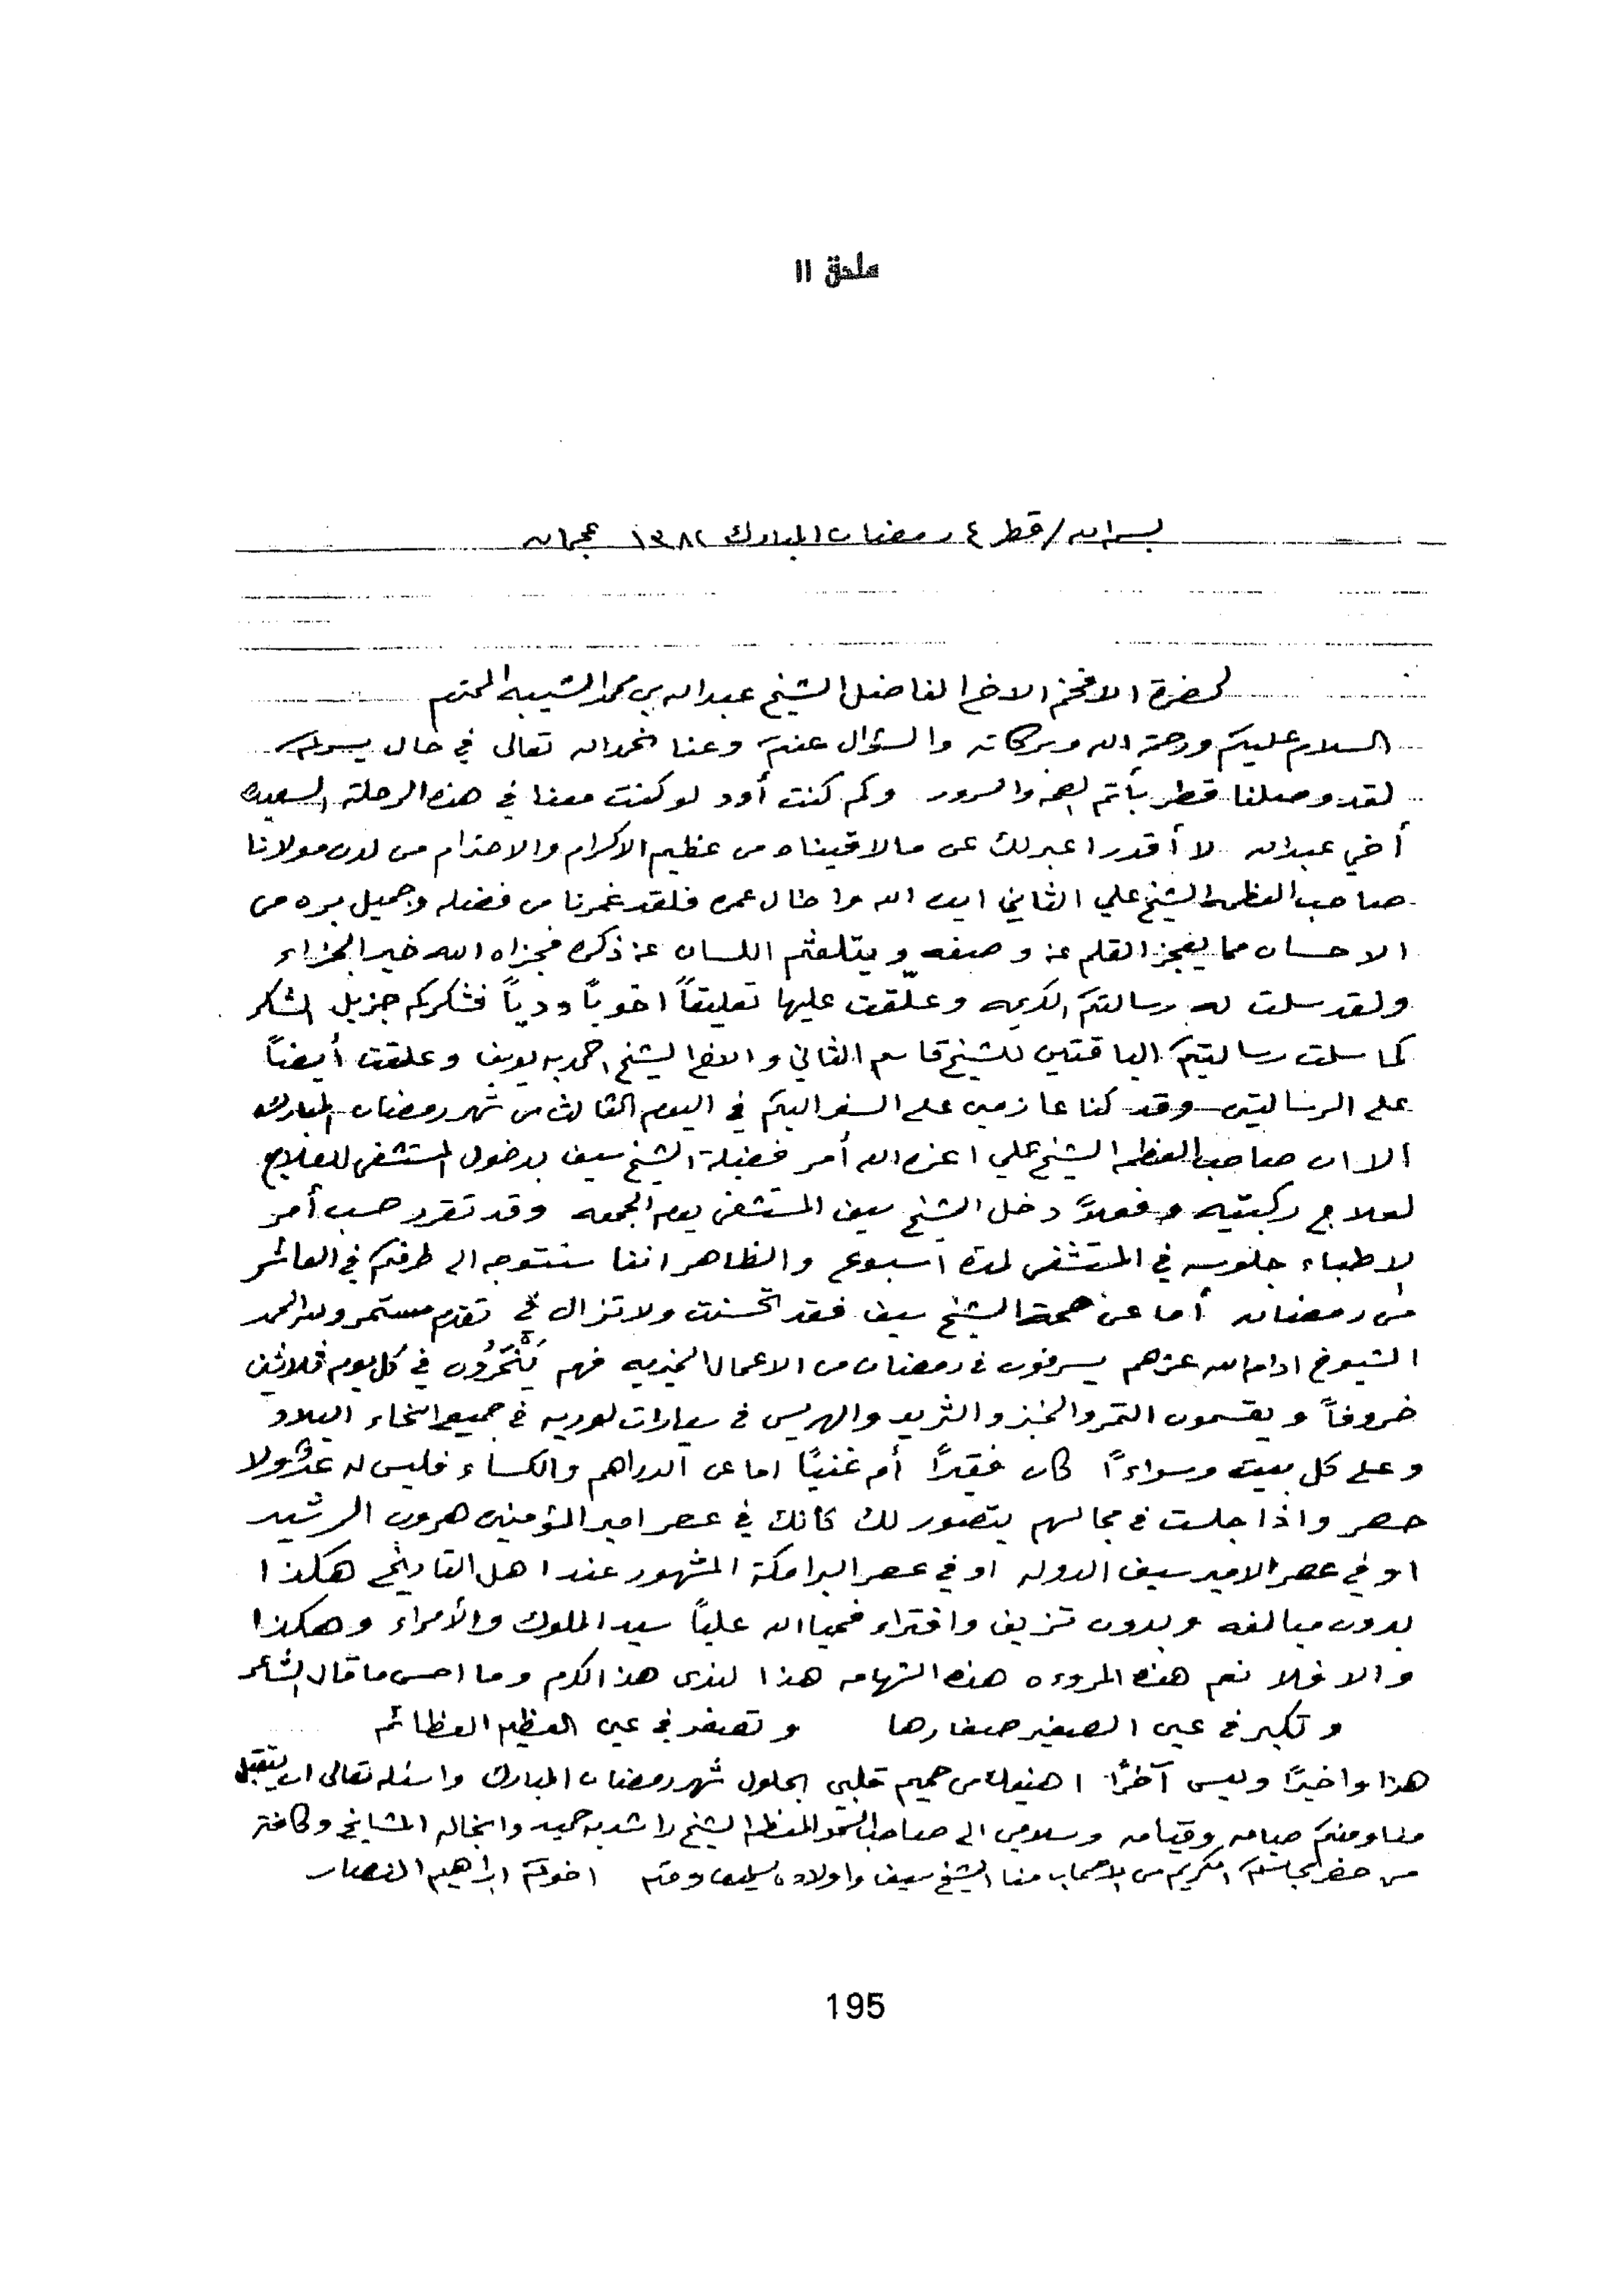 ملحق ١١
بسم الله / قطر ٤ رمضان المبارك ١٣٨٢ عجمان
لحضرة الافخم الاخ الفاضل الشيخ عبدالله بن محمد الشيبه المحترم
السلام عليكم ورحمة الله وبركاته والسؤال عنكم وعنا نحمدالله تعالى في حال يسركم
لقد وصلنا قطر بأتم الصحه والسرور وكم كنت أود لو كنت معنا في هذه الرحلة السعيده
أخي عبدالله لا أقدر اعبر لك عن مالاقيناه من عظيم الاكرام والاحترام من لدن مولانا
صاحب العظمة الشيخ علي الثاني ايده الله واطال عمره فلقد غمرنا من فضله وجميل بره من
الاحسان مما يعجز القلم عن وصفه ويتلعثم اللسان عن ذكره فجزاه الله خير الجزاء
ولقد سلمت له رسالتكم الكريمه وعلّقت عليها تعليقاً اخوياً ودياً فشكركم جزيل الشكر
كما سلمت رسالتيكم الباقتين للشيخ قاسم الثاني والاخ الشيخ احمد بن يوسف وعلقت أيضاً
على الرسالتين وقد كنا عازمين على السفر اليكم في اليوم الثالث من شهر رمضان المبارك
الا ان صاحب العظمه الشيخ علي اعزه الله أمر فضيلة الشيخ سيف بدخول المستشفى للعلاج
لعلاج ركبتيه وفعلاً دخل الشيخ سيف المستشفى يوم الجمعه وقد تقرر حسب أمر
الاطباء جلوسه في المستشفى لمدة اسبوع والظاهر اننا سنتوجه الى طرفكم في العاشر
من رمضان أما عن صحة الشيخ سيف فقد تحسنت ولا تزال في تقدم مستمر ولله الحمد
الشيوخ ادام الله عزهم يسرفون في رمضان من الاعمال الخيريه فهم يَنْحَرُون في كل يوم ثلاثين
خروفاً ويقسمون التمر والخبز والثريد والهريس في سيارات لوريه في جميع انحاء البلاد
وعلى كل بيت وسواءً كان فقيراً أم غنياً اما عن الدراهم والكساء فليس له عدٌ ولا
حصر واذا جلست في مجالسهم يتصور لك كأنك في عصر امير المؤمنين هرون الرشيد
او في عصر الامير سيف الدوله او في عصر البرامكة المشهور عند اهل التاريخ هكذا
بدون مبالغه وبدون تزييف وافتراء فحيا الله علياً سيد الملوك والأمراء وهكذا
والا فلا نعم هذه المروءه هذه الشهامه هذا الندى هذا الكرم وما احسن ما قال الشاعر
وتكبر في عين الصغير صغارها وتصغر في عين العظيم العظائم
هذا واخيراً وليس آخراً اهنيك من صميم قلبي بحلول شهر رمضان المبارك واسئله تعالى ان يتقبل
منا ومنكم صيامه وقيامه وسلامي الى صاحب السمو المعظم الشيخ راشد بن حميد وانجاله المشايخ وكافة
من حضر مجلسكم الكريم من الاصحاب منا الشيخ سيف واولاده يسلمون ودمتم اخوكم ابراهيم النصار
195